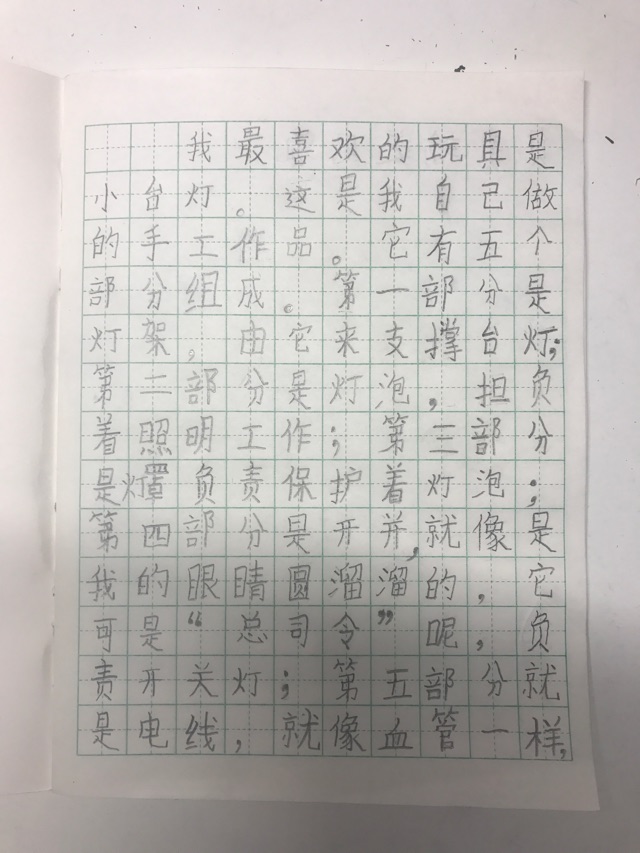 我最喜欢的玩具是
小台灯。这是我自己做
的手工作品。它有五个
部分组成。第一部分是
灯架，由它来支撑台灯；
第二部分是灯泡，担负
着照明工作；第三部分
是灯罩负责保护着灯泡；
第四部分是开并，就像是
我的眼睛圆溜溜的，它
可是“总司令”呢，负
责开关灯；第五部分就
是电线，就像血管一样，